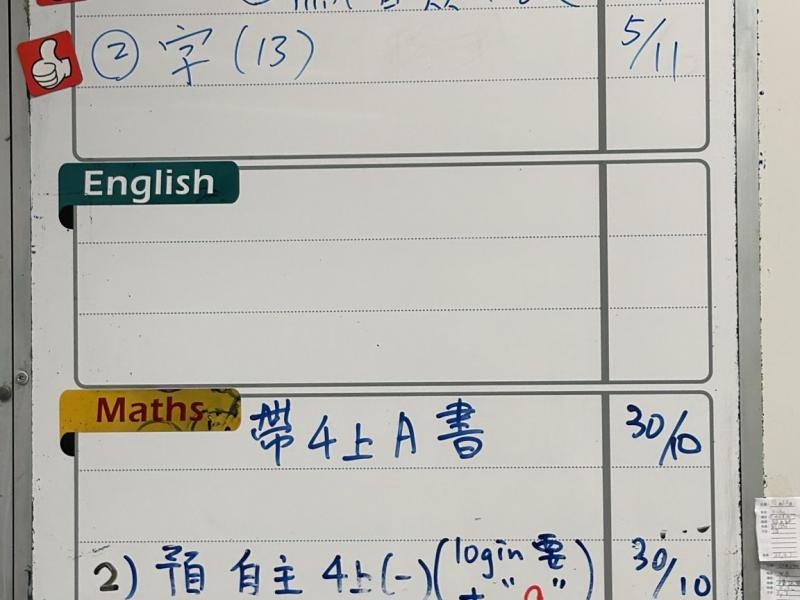 ② 字(13) 5/11
English
Maths
帶4上A書 30/10
2) 預 自主 4上(一)(login要 30/10